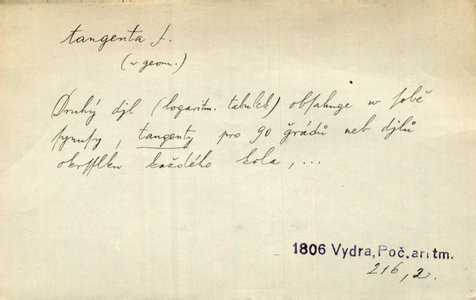 tangenta f.
(v geom.)
Druhý djl (logaritm. tabulek) obsahuge w sobě
synusy, tangenty pro 90 grádů neb djlů
okrsslku každého kola, ...
1806 Vydra, Poč. aritm.
216, 2.